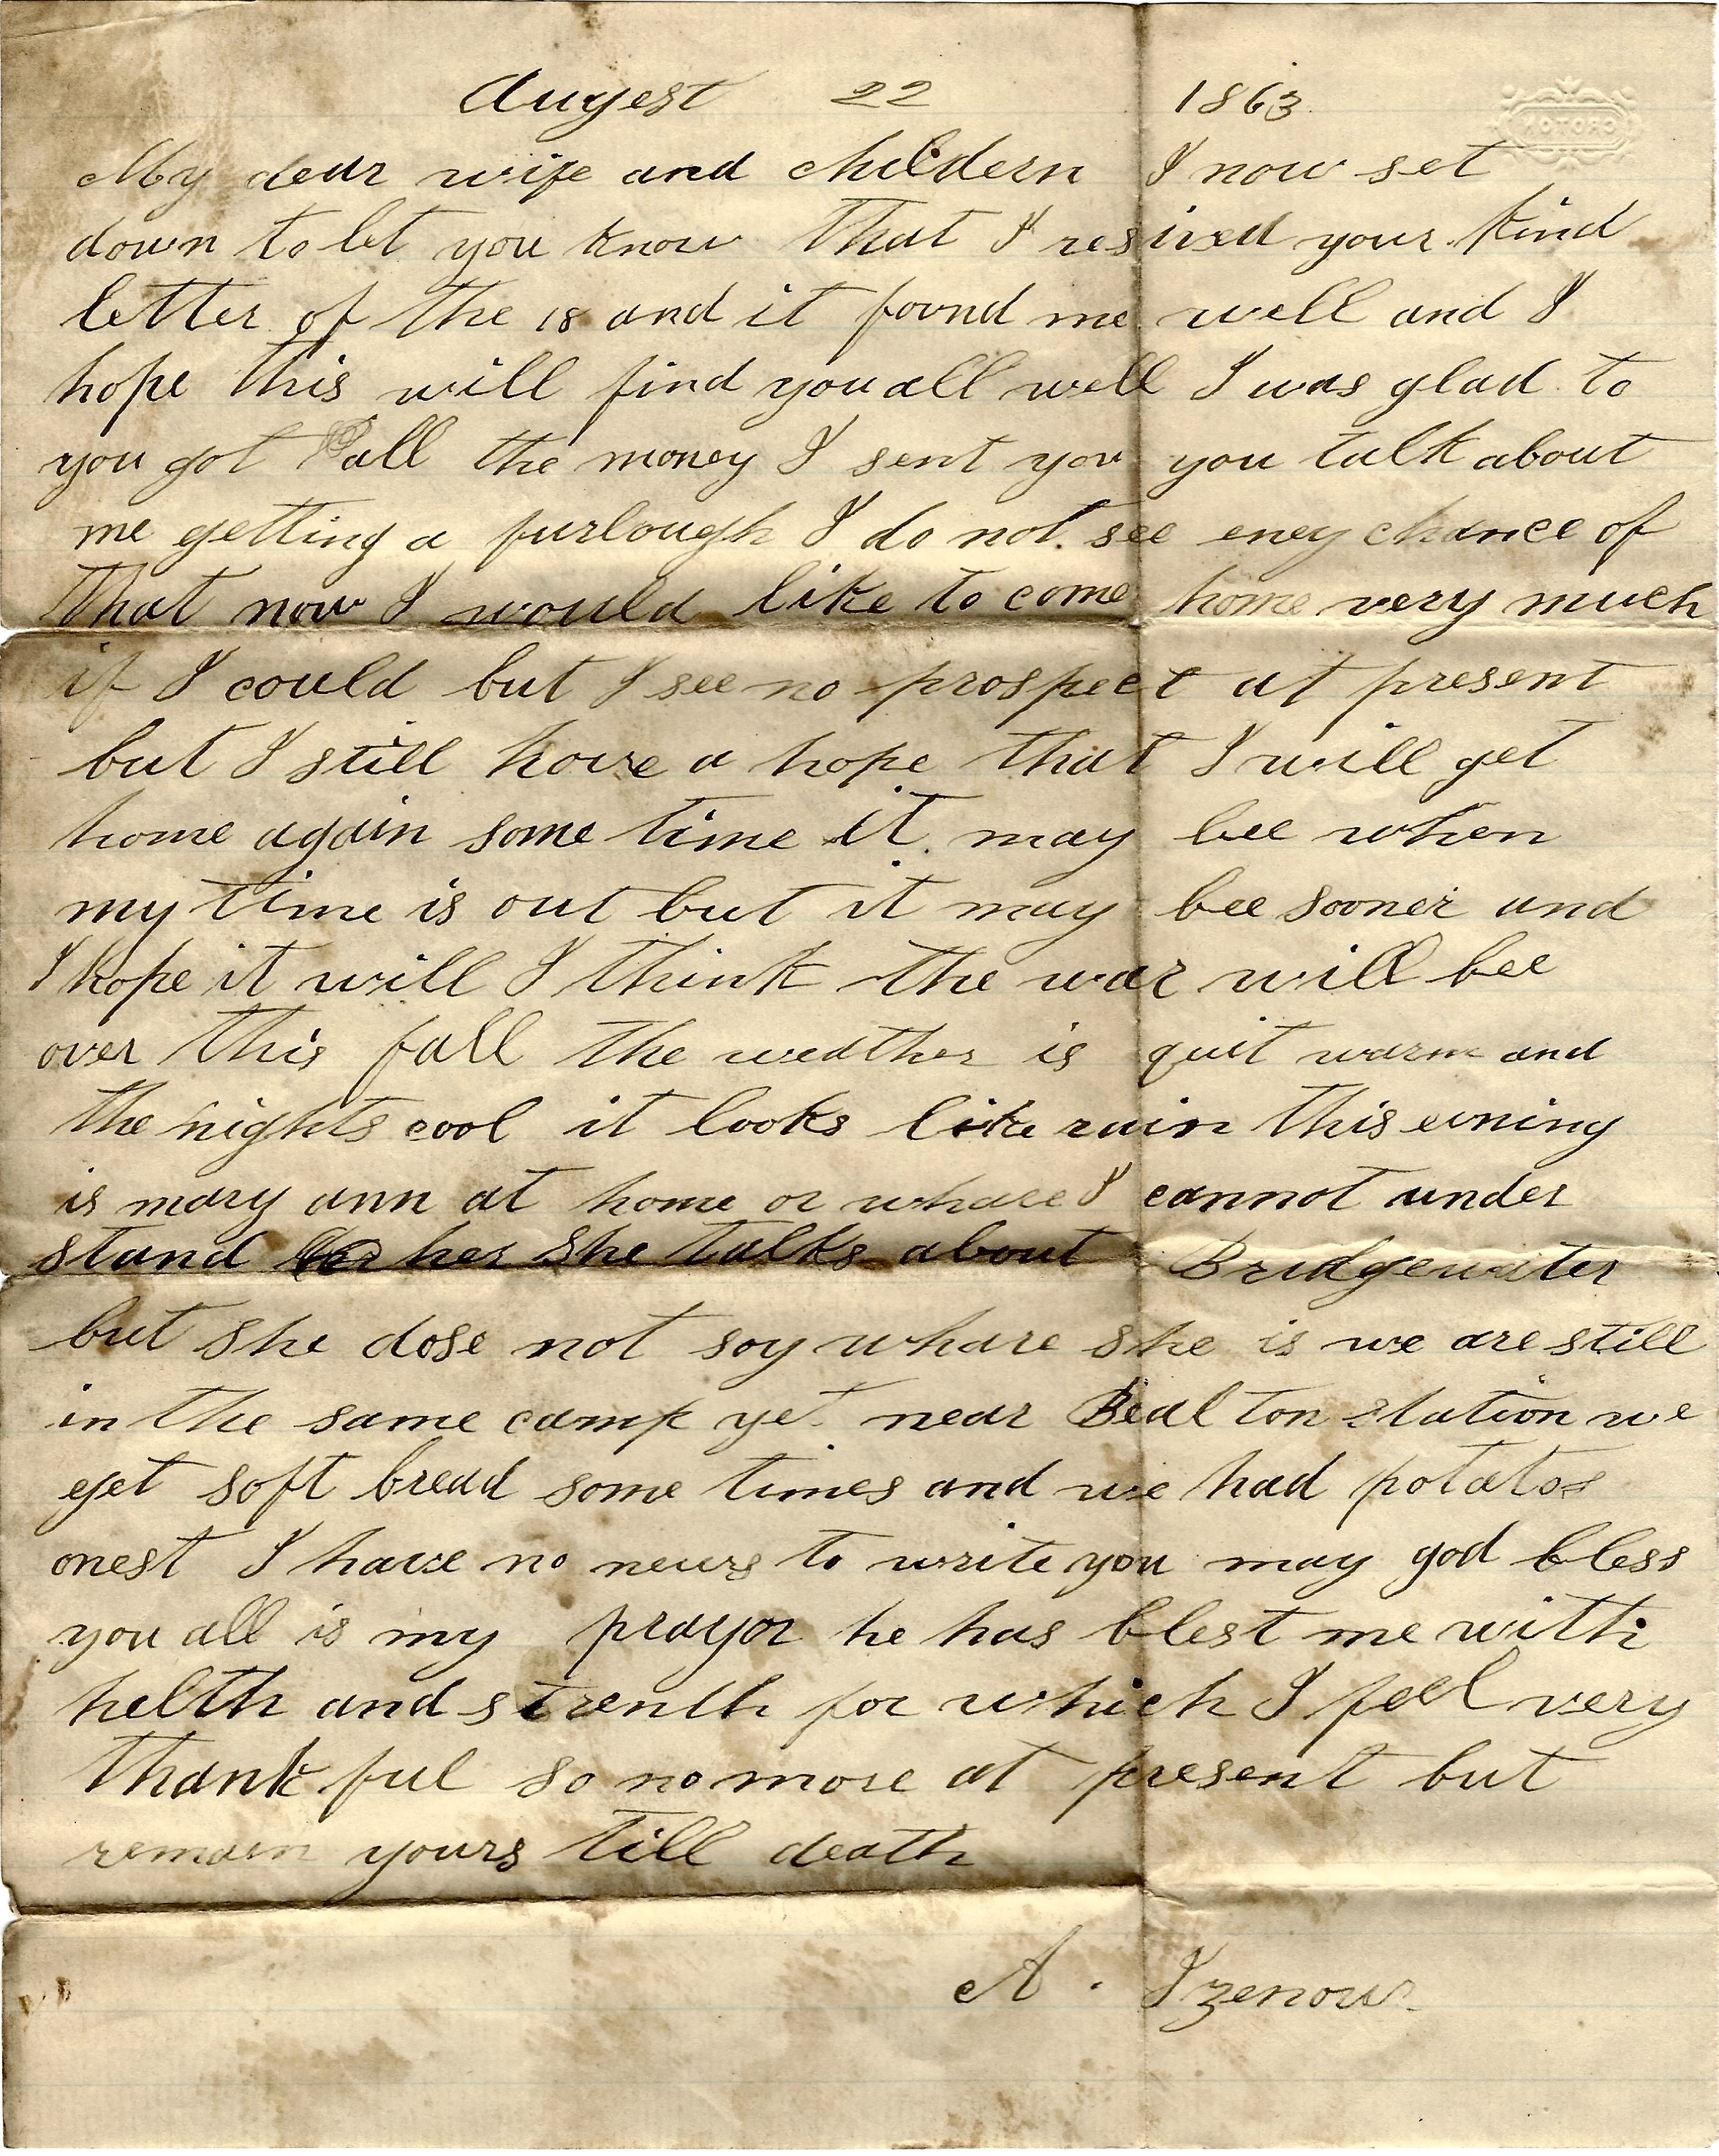 Augest 22 1863
CROTON
My dear wife and childern I now set
down to let you know that I resived your kind
letter of the 18 and it found me well and I
hope this will find you all well I was glad to
you got all the money I sent you you talk about
me getting a furlough I do not see eney chance of
that now I would like to come home very much
if I could but I see no prospect at present
but I still have a hope that I will get
home again some time it may bee when
my time is out but it may bee sooner and
I hope it will I think the war will bee
over this fall the weather is quit warm and
the nights cool it looks like rain this evning
is mary ann at home or whare I cannot under
stand her she talks about Bridgewater
but she dose not say whare she is we are still
in the same camp yet near Beal ton station we
get soft bread some times and we had potatos
onest I have no news to write you may god bless
you all is my prayor he has blest me with
helth and strenth for which I fell very
thank ful so no more at present but
remain yours till death
A. Izenour